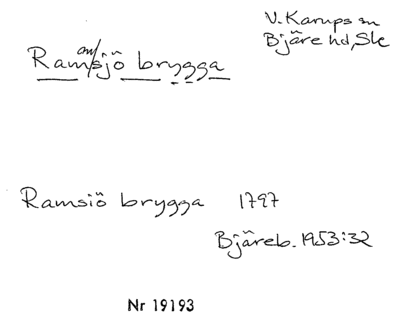 V. Karups sn
Bjäre hd, Sk
am/
Ramsjö brygga
Ramsiö brygga 1797
Bjäreb. 1953:32
Nr 19193